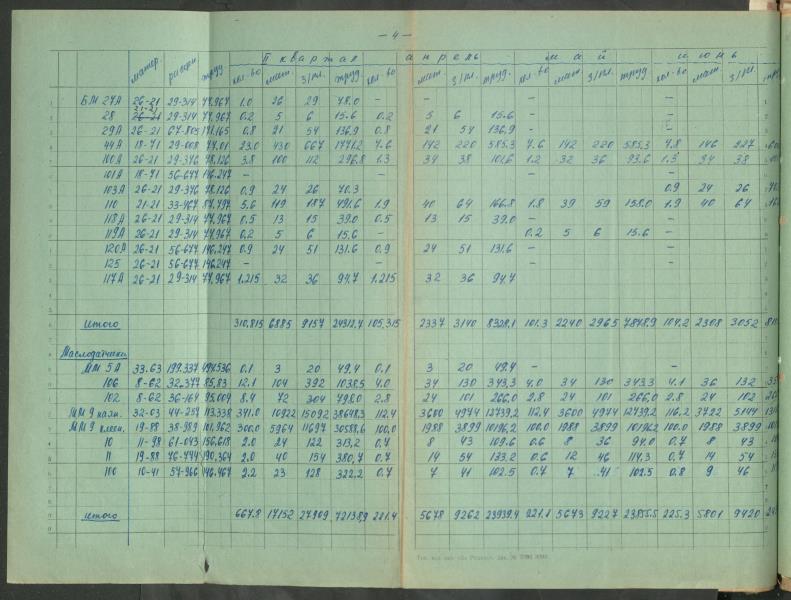 — 4 —
II квартал апрель май июнь
матер. расцен труд кол-во мат. з/пл. труд. кол-во мат. з/пл. труд. кол-во мат з/пл. труд кол-во мат з/пл.
БМ 27А 26-21 29-314 77,967 1.0 26 29 78.0 – – – –
21-21
28 26-21 29-314 77,967 0.2 5 6 15.6 0.2 5 6 15.6 – –
29А 26-21 67-803 171,165 0.8 21 54 136,9 0.8 21 54 136,9 – –
44А 18-71 29-008 77,01 23.0 430 667 1771.2 7.6 142 220 585.3 7.6 142 220 585.3 7.8 146 227
100А 26-21 29-376 78,126 3.8 100 112 296.8 1.3 34 38 101.6 1.2 32 36 93.6 1.3 34 38
101А 18-71 56-677 146.247 – – – –
103А 26-21 29-376 78,126 0.9 24 26 70.3 – – 0.9 24 26
110 21-21 33-967 87,797 5.6 119 187 491.6 1.9 40 64 166.8 1.8 39 59 158.0 1.9 40 64
118А 26-21 29-314 77,967 0.5 13 15 39.0 0.5 13 15 39.0 – –
119А 26-21 29-314 77,967 0.2 5 6 15.6 – 0.2 5 6 15.6 –
120А 26-21 56-677 146,247 0.9 24 51 131.6 0.9 24 51 131.6 – –
125 26-21 56-677 146.247 – – – –
117А 26-21 29-314 77,967 1.215 32 36 94.7 1.215 32 36 94.7
итого 310,815 6885 9157 24312,4 105,315 2337 3140 8328,1 101.3 2240 2965 7878,9 104.2 2308 3052
Маслодатчики
ММ 5А 33.63 199.337 494.536 0.1 3 20 49.4 0.1 3 20 49.4 – –
106 8-62 32,377 85,83 12.1 104 392 1038.5 4.0 34 130 343,3 4.0 34 130 343.3 4.1 36 132
102 8-62 36-161 95,009 8.4 72 304 798.0 2.8 24 101 266,0 2.8 24 101 266,0 2.8 24 102
ММ 9 казн. 32-03 44-259 113.338 341.0 10922 15092 38648,3 112.4 3600 4974 12739,2 112,4 3600 4974 12739,2 116,2 3722 5144
ММ 9 клеен. 19-88 38-989 101,962 300.0 5964 11697 30588,6 100.0 1988 3899 10196,2 100.0 1988 3899 10196,2 100.0 1988 3899
10 11-98 61-043 156,618 2.0 24 122 313,2 0.7 8 43 109.6 0.6 8 36 94,0 0.7 8 43
11 19-88 76-774 190,364 2.0 40 154 380,7 0.7 14 54 133.2 0.6 12 46 114.3 0.7 14 54
100 10-41 57-966 146.467 2.2 23 128 322,2 0.7 7 41 102.5 0.7 7 41 102.5 0.8 9 46
итого 667.8 17152 27909 72138,9 221.4 5678 9262 23939.4 221.1 5673 9227 23855.5 225.3 5801 9420